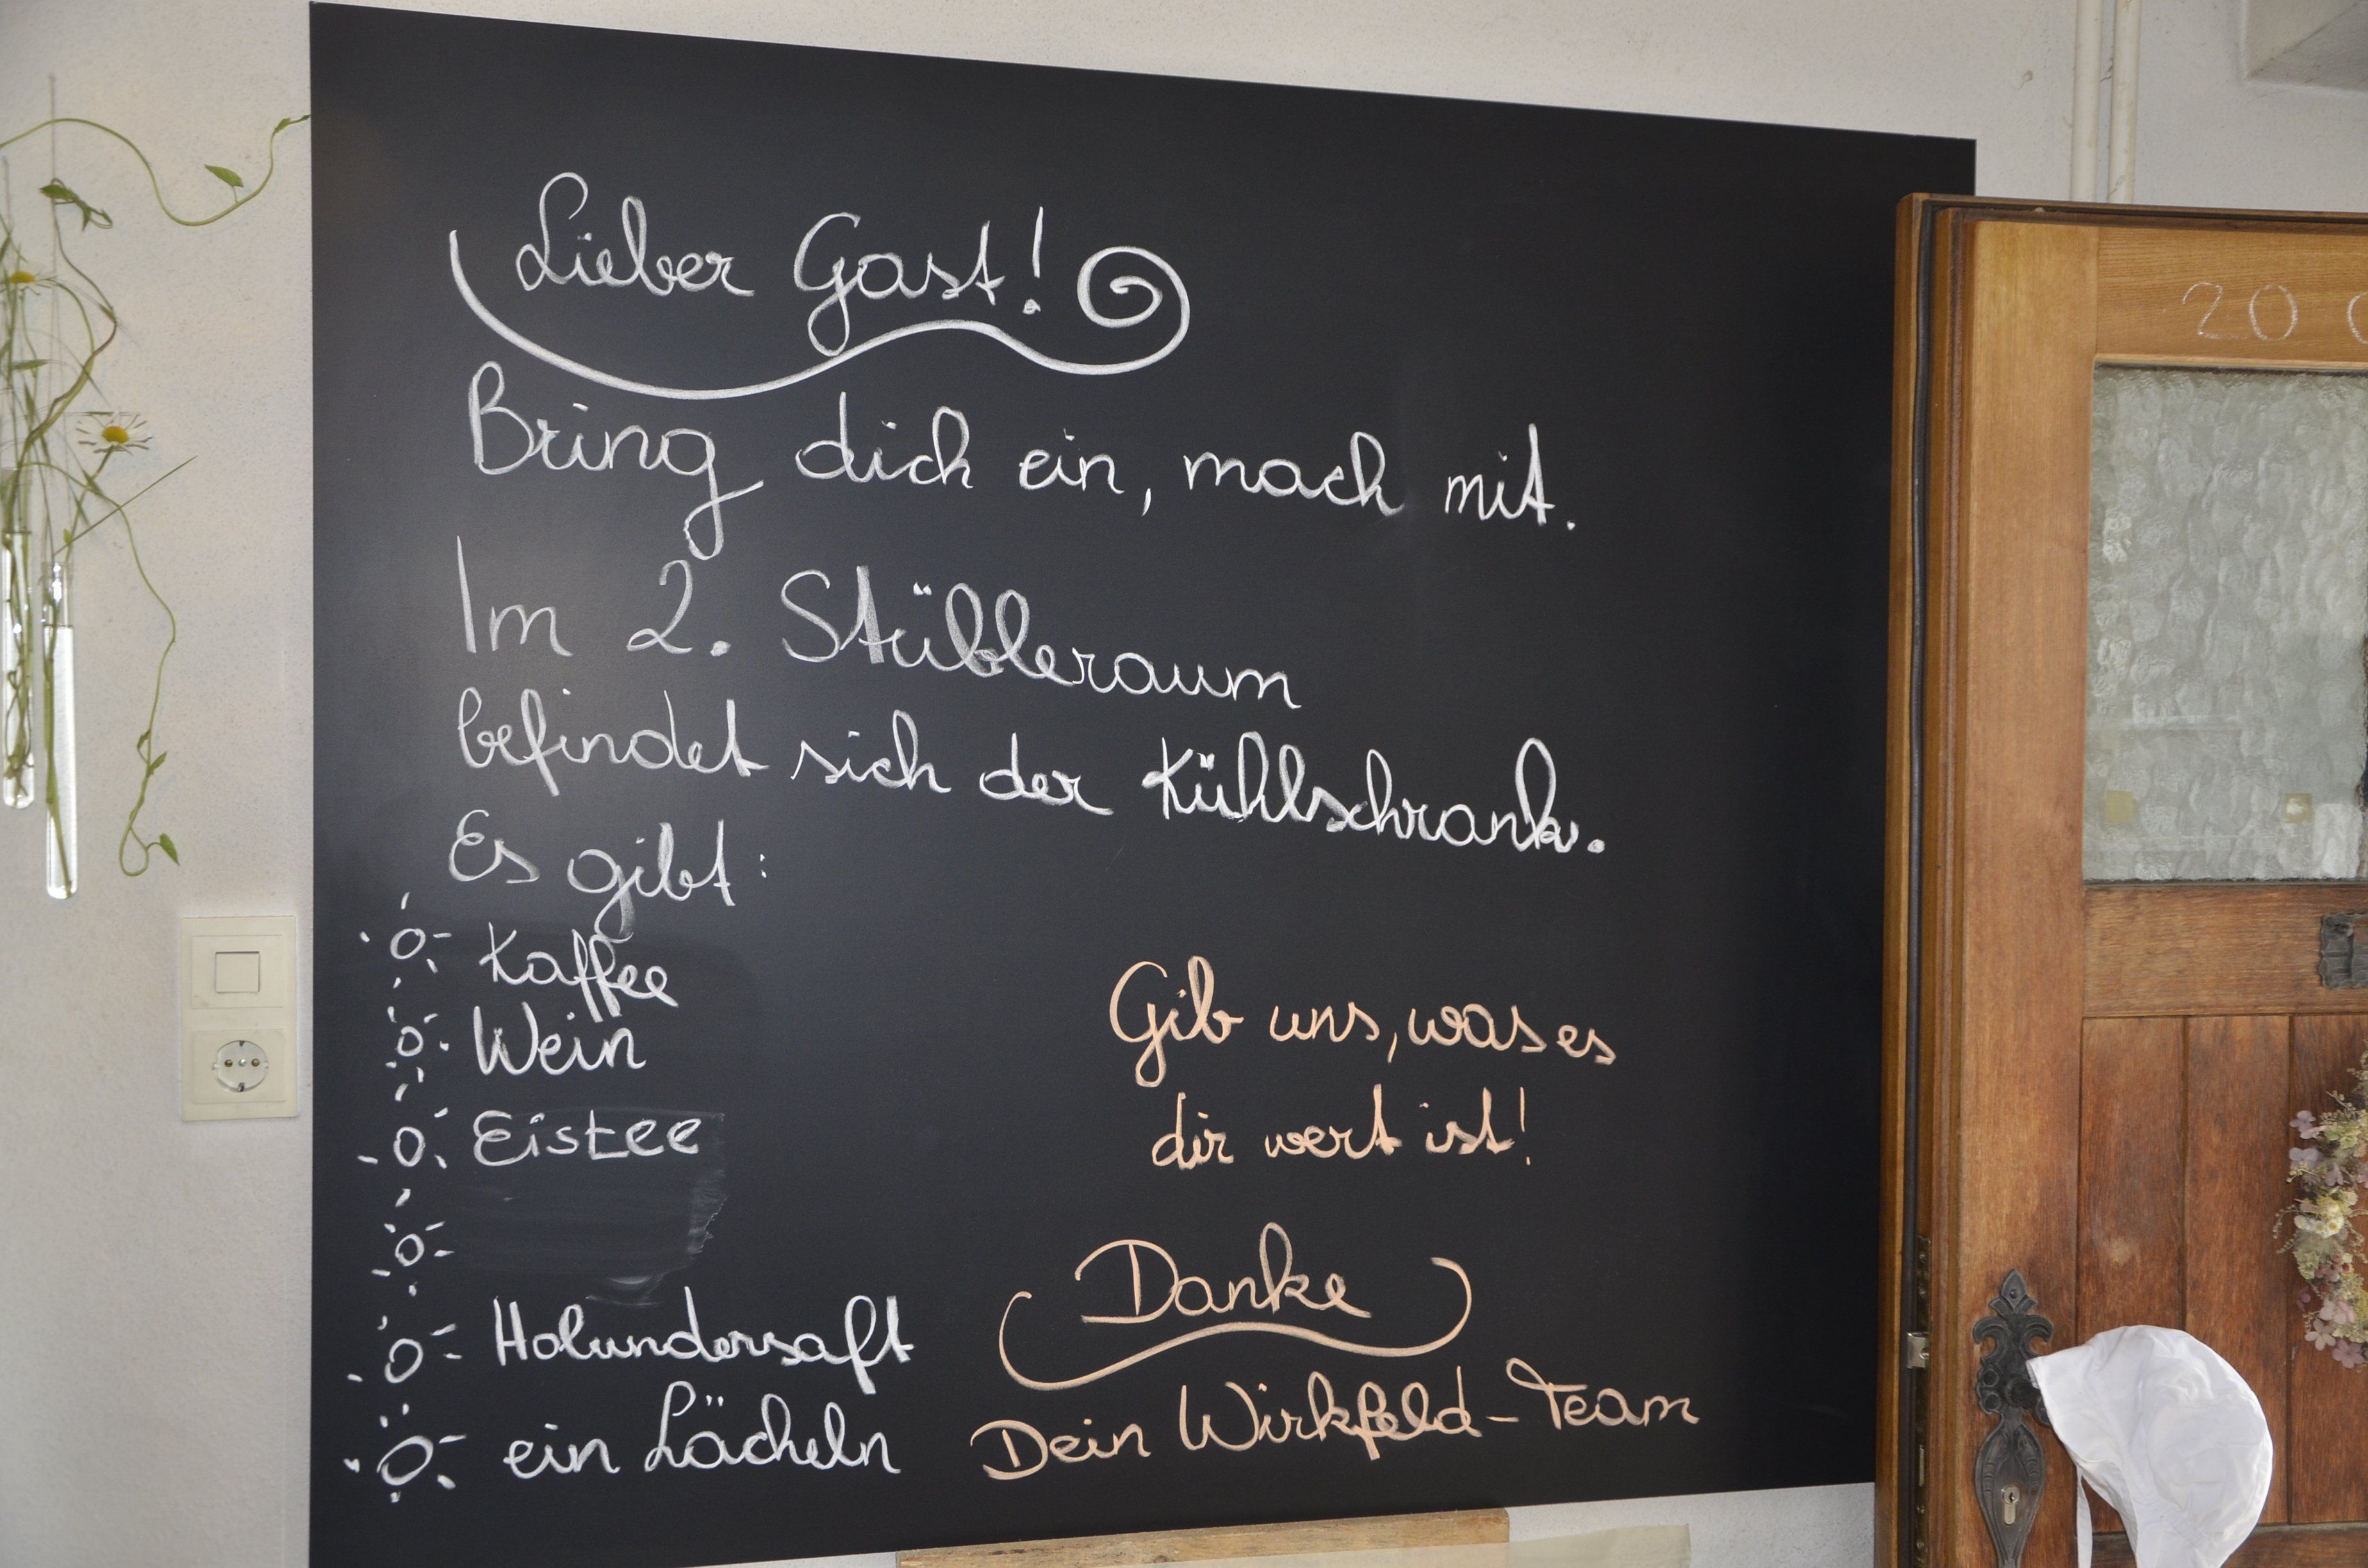 Lieber Gast!
Bring dich ein, mach mit.
Im 2. Stübleraum
befindet sich der Kühlschrank.
Es gibt:
Kaffee
Wein
Eistee
Holundersaft
ein Lächeln
Gib uns, was es
dir wert ist!
Danke
Dein Wirkfeld-Team
20